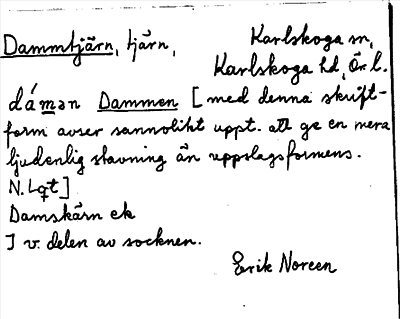 Dammtjärn, tjärn, Karlskoga sn,
Karlskoga hd, Ör l.
dámən Dammen [med denna skrift-
form avser sannolikt uppt. att ge en mera
ljudenlig stavning än uppslagsformens.
N. Lqt]
Damskärn ek
I v. delen av socknen.
Erik Noreen